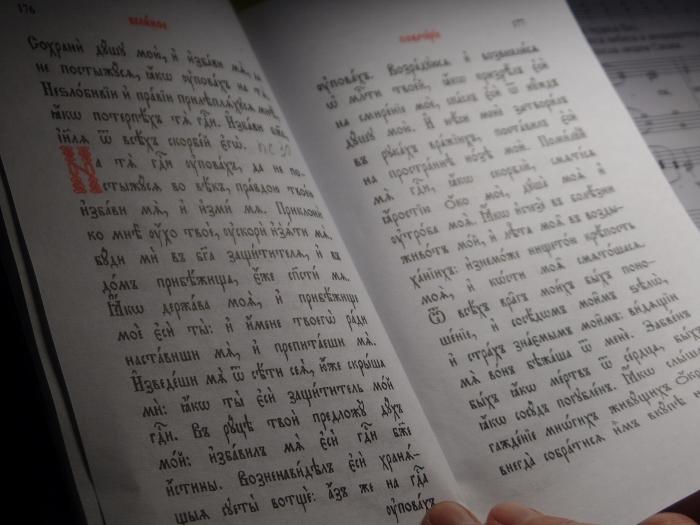 176
вели́кое
Сохрани́ дꙋ́шꙋ мою̀, и҆ и҆зба́ви мѧ̀,
не постыжꙋ́сѧ, ꙗ҆́кѡ ᲂу҆пова́хъ на тѧ̀.
Неѕло́бивїи и҆ пра́вїи прилѣплѧ́хꙋсѧ мнѣ̀,
ꙗ҆́кѡ потерпѣ́хъ тѧ̀ гдⷭ҇и. И҆зба́ви бж҃е,
і҆и҃лѧ ѿ всѣ́хъ скорбе́й є҆гѡ̀. ПС 30
На тѧ̀ гдⷭ҇и ᲂу҆пова́хъ, да не по-
стыжꙋ́сѧ во вѣ́къ, пра́вдою твое́ю
и҆зба́ви мѧ̀, и҆ и҆зми́ мѧ. Приклонѝ
ко мнѣ̀ ᲂу҆́хо твоѐ, ᲂу҆скорѝ и҆з̾ѧ́ти мѧ̀.
бꙋ́ди мѝ въ бг҃а защи́тителѧ, и҆ въ
до́мъ прибѣ́жища, є҆́же спⷭ҇ти́ мѧ.
Ꙗ҆́кѡ держа́ва моѧ̀, и҆ прибѣ́жище
моѐ є҆сѝ ты̀: и҆ и҆́мене твоегѡ̀ ра́ди
наста́виши мѧ̀, и҆ препита́еши мѧ̀.
И҆зведе́ши мѧ̀ ѿ сѣ́ти сеѧ̀, ю҆́же скры́ша
мѝ: ꙗ҆́кѡ ты̀ є҆сѝ защи́титель мо́й
гдⷭ҇и. Въ рꙋ́цѣ твоѝ предложꙋ̀ дꙋ́хъ
мо́й: и҆зба́вилъ мѧ̀ є҆сѝ гдⷭ҇и бж҃е
и҆́стины. Возненави́дѣлъ є҆сѝ хранѧ́-
щыѧ сꙋєты̑ вотщѐ: а҆́зъ же на гдⷭ҇а
ᲂу҆пова́хъ
177
повече́рїе
ᲂу҆пова́хъ. Возра́дꙋюсѧ и҆ возвеселю́сѧ
ѡ҆ млⷭ҇ти твое́й, ꙗ҆́кѡ призрѣ́лъ є҆сѝ
на смире́нїе моѐ, спа́слъ є҆сѝ ѿ нꙋ́ждъ
дꙋ́шꙋ мою̀. И҆ нѣ́си менѐ затвори́лъ
въ рꙋка́хъ вра́жїихъ, поста́вилъ є҆сѝ
на простра́ннѣ но́зѣ моѝ. Поми́лꙋй
мѧ̀ гдⷭ҇и, ꙗ҆́кѡ скорблю̀, смѧте́сѧ
ꙗ҆́ростїю ѻ҆́ко моѐ, дꙋша̀ моѧ̀ и҆
ᲂу҆тро́ба моѧ̀. Ꙗ҆́кѡ и҆счезѐ въ болѣ́зни
живо́тъ мо́й, и҆ лѣ̑та моѧ̑ въ возды-
ха́нїихъ: и҆знемо́же нището́ю крѣ́пость
моѧ̀, и҆ кѡ́сти моѧ̑ смѧто́шасѧ.
Ѿ всѣ́хъ вра̑гъ мои́хъ бы́хъ поно-
ше́нїе, и҆ сосѣ́дѡмъ мои̑мъ ѕѣлѡ̀,
и҆ стра́хъ зна́ємымъ мои̑мъ: ви́дѧщїи
мѧ̀ во́нъ бѣжа́ша ѿ менє̀. Забве́нъ
бы́хъ ꙗ҆́кѡ ме́ртвъ ѿ се́рдца, бы́хъ
ꙗ҆́кѡ сосꙋ́дъ погꙋбле́нъ. Ꙗ҆́кѡ слы́шахъ
гажде́нїе мно́гихъ живꙋ́щихъ ѡ҆́крестъ
внегда̀ собра́тисѧ и҆̀мъ вкꙋ́пѣ